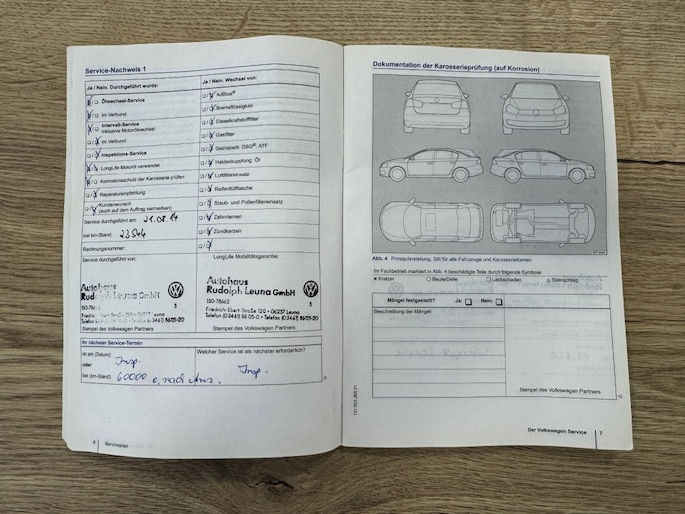 Service-Nachweis 1
Ja / Nein. Durchgeführt wurde:
Ölwechsel-Service
im Verbund
Intervall-Service
inklusive Motorölwechsel
im Verbund
Inspektions-Service
LongLife Motoröl verwendet
Korrosionsschutz der Karosserie prüfen
Reparaturempfehlung
Kundenwunsch
(auch auf dem Auftrag vermerken)
Service durchgeführt am: 21.08.14
bei km-Stand: 23544
Rechnungsnummer:
Service durchgeführt von:
Autohaus
Rudolph Leuna GmbH
Friedrich-Ebert-Straße 120 • 06237 Leuna
Telefon (03461) 8605-0 • Telefax (03461) 8605-20
Stempel des Volkswagen Partners
Ja / Nein. Wechsel von:
AdBlue®
Bremsflüssigkeit
Dieselkraftstofffilter
Gasfilter
Getriebeöl: DSG®, ATF
Haldexkupplung: Öl
Luftfiltereinsatz
Reifenfüllflasche
Staub- und Pollenfiltereinsatz
Zahnriemen
Zündkerzen
LongLife Mobilitätsgarantie:
Autohaus
Rudolph Leuna GmbH
ISO-78662
5
Friedrich-Ebert-Straße 120 • 06237 Leuna
Telefon (03461) 8605-0 • Telefax (03461) 8605-20
Stempel des Volkswagen Partners
Ihr nächster Service-Termin:
ist am (Datum): Insp.
oder
bei (km-Stand): 60000 o. nach Anz.
Welcher Service ist als nächster erforderlich?
Insp.
6 Serviceplan
Dokumentation der Karosserieprüfung (auf Korrosion)
Abb. 4 Prinzipdarstellung. Gilt für alle Fahrzeuge und Karosserieformen.
Ihr Fachbetrieb markiert in Abb. 4 beschädigte Teile durch folgende Symbole:
Kratzer
Beule/Delle
Lackschaden
Steinschlag
Mängel festgestellt? Ja: Nein:
Beschreibung der Mängel:
Stempel des Volkswagen Partners
Der Volkswagen Service 7